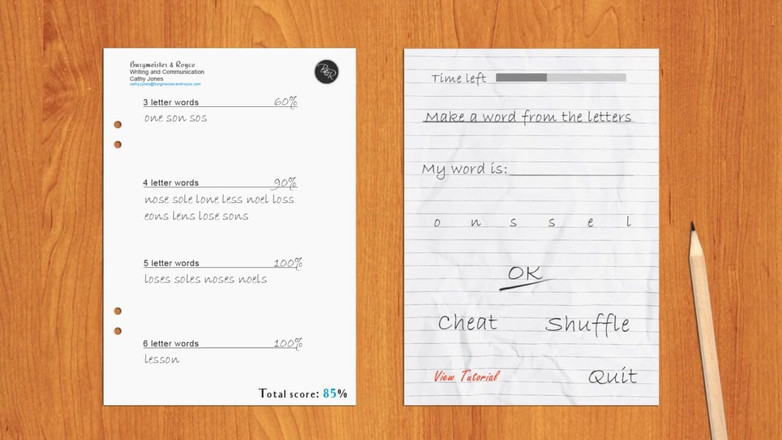 Burgmeister & Royce
Writing and Communication
Cathy Jones
cathy.jones@burgmeisterandroyce.com
B&R
3 letter words 60%
one son sos
4 letter words 90%
nose sole lone less noel loss
eons lens lose sons
5 letter words 100%
loses soles noses noels
6 letter words 100%
lesson
Total score: 85%
Time left
Make a word from the letters
My word is:
o n s s e l
OK
Cheat Shuffle
View Tutorial Quit